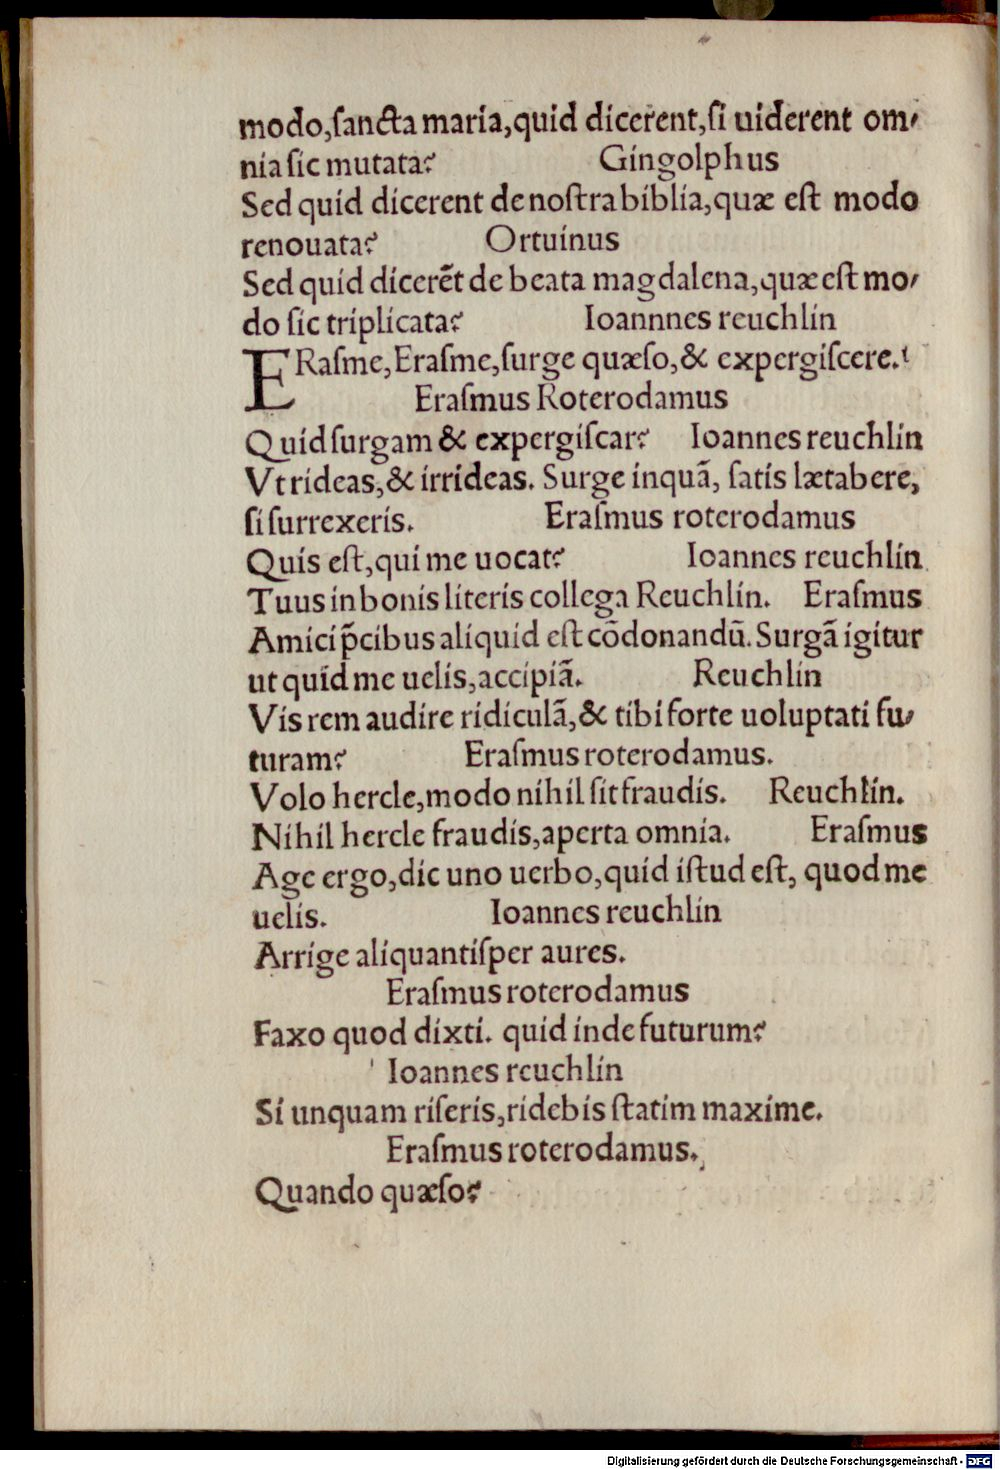 modo,ſancta maria,quid dicerent,ſi uiderent om⸗
nia ſic mutata? Gingolphus
Sed quid dicerent de noſtra biblia,quæ eſt modo
renouata? Ortuinus
Sed quid dicerẽt de beata magdalena,quæ eſt mo⸗
do ſic triplicata? Ioannnes reuchlin
ERaſme,Eraſme,ſurge quæſo,& expergiſcere.
Eraſmus Roterodamus
Quid ſurgam & expergiſcar? Ioannes reuchlin
Vt rideas,& irrideas. Surge inquã, ſatis lætabere,
ſi ſurrexeris. Eraſmus roterodamus
Quis eſt,qui me uocat? Ioannes reuchlin
Tuus in bonis literis collega Reuchlin. Eraſmus
Amici p̃cibus aliquid eſt cõdonandũ. Surgã igitur
ut quid me uelis,accipiã. Reuchlin
Vis rem audire ridiculã,& tibi forte uoluptati fu⸗
turam? Eraſmus roterodamus.
Volo hercle,modo nihil ſit fraudis. Reuchlin.
Nihil hercle fraudis,aperta omnia. Eraſmus
Age ergo,dic uno uerbo,quid iſtud eſt, quod me
uelis. Ioannes reuchlin
Arrige aliquantiſper aures.
Eraſmus roterodamus
Faxo quod dixti. quid inde futurum?
Ioannes reuchlin
Si unquam riſeris,ridebis ſtatim maxime.
Eraſmus roterodamus.
Quando quæſo?
Digitalisierung gefördert durch die Deutsche Forschungsgemeinschaft - DFG